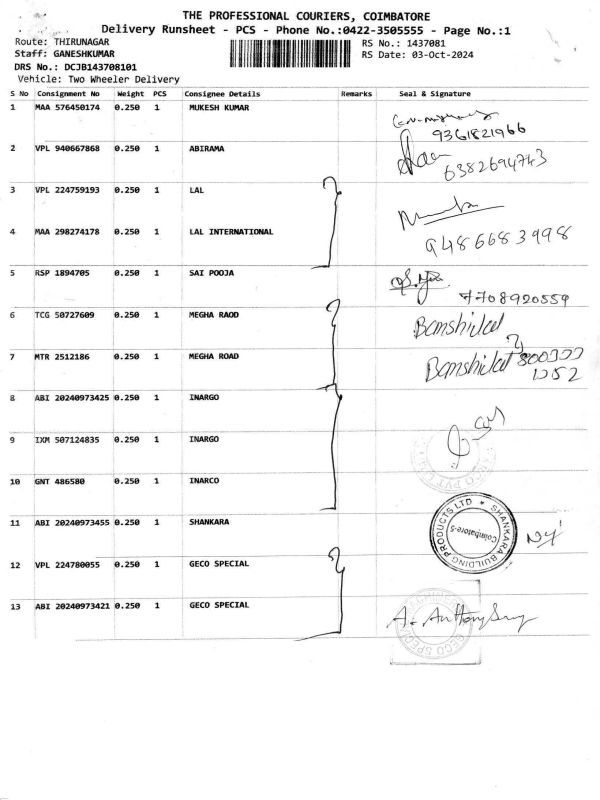 THE PROFESSIONAL COURIERS, COIMBATORE
Delivery Runsheet - PCS - Phone No.:0422-3505555 - Page No.:1
Route: THIRUNAGAR RS No.: 1437081
Staff: GANESHKUMAR RS Date: 03-Oct-2024
DRS No.: DCJB143708101
Vehicle: Two Wheeler Delivery
S No Consignment No Weight PCS Consignee Details Remarks Seal & Signature
1 MAA 576450174 0.250 1 MUKESH KUMAR
9361821966
2 VPL 940667868 0.250 1 ABIRAMA
6382694743
3 VPL 224759193 0.250 1 LAL
4 MAA 298274178 0.250 1 LAL INTERNATIONAL
9486683998
5 RSP 1894705 0.250 1 SAI POOJA
7708920559
6 TCG 50727609 0.250 1 MEGHA RAOD
Bamshilal
7 MTR 2512186 0.250 1 MEGHA ROAD
Bamshilal
1052
8 ABI 20240973425 0.250 1 INARGO
9 IXM 507124835 0.250 1 INARGO
10 GNT 486580 0.250 1 INARCO
11 ABI 20240973455 0.250 1 SHANKARA
SHANKARA BUILDING PRODUCTS LTD
Coimbatore-5
12 VPL 224780055 0.250 1 GECO SPECIAL
13 ABI 20240973421 0.250 1 GECO SPECIAL
A. Anthony
GECO